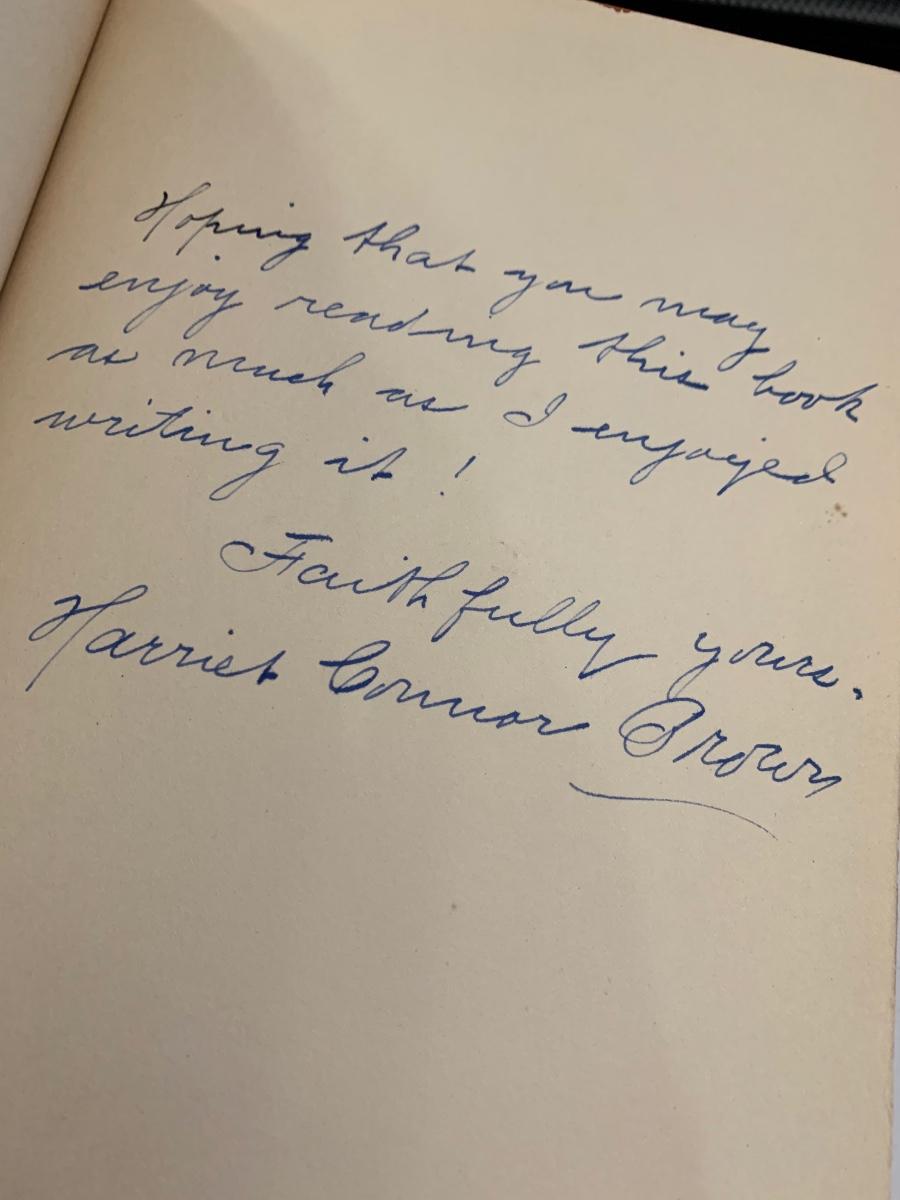 Hoping that you may
enjoy reading this book
as much as I enjoyed
writing it!
Faithfully yours.
Harriet Connor Brown